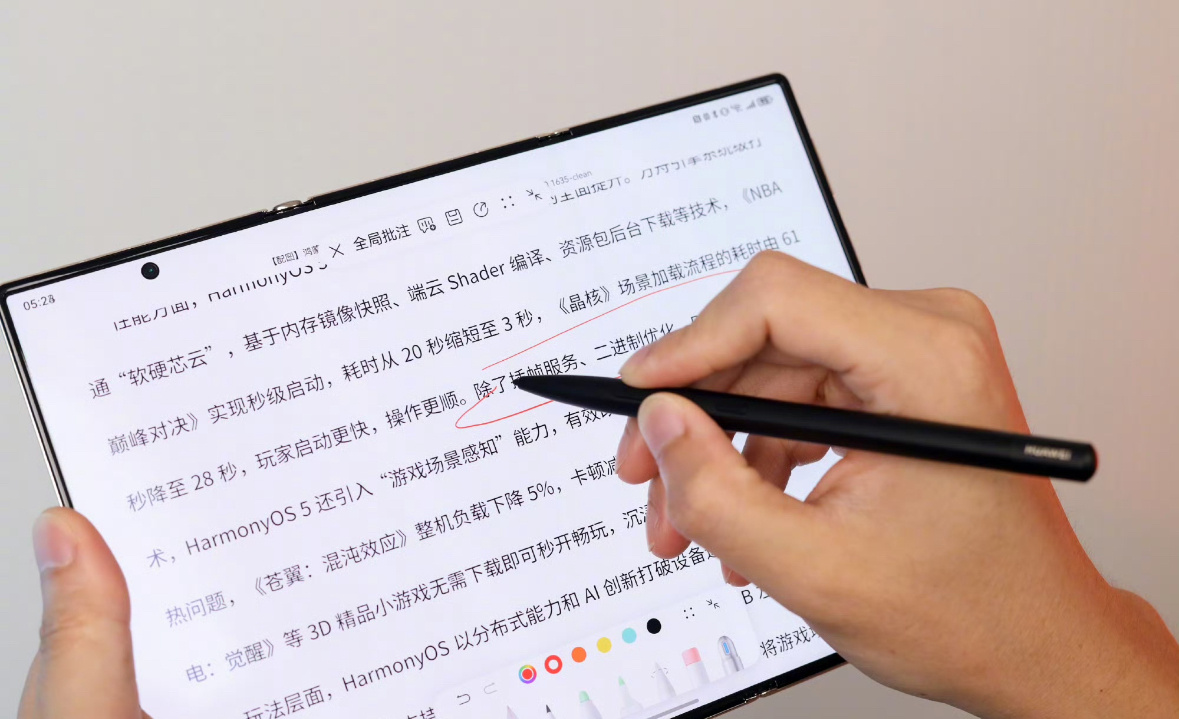 05:28
11635-clean
【配图】鸿蒙
全局批注
性能方面，HarmonyOS 5
通“软硬芯云”，基于内存镜像快照、端云 Shader 编译、资源包后台下载等技术，《NBA
巅峰对决》实现秒级启动，耗时从 20 秒缩短至 3 秒，《晶核》场景加载流程的耗时由 61
秒降至 28 秒，玩家启动更快，操作更顺。除了插帧服务、二进制优化
术，HarmonyOS 5 还引入“游戏场景感知”能力，有效
热问题，《苍翼：混沌效应》整机负载下降 5%，卡顿减
电：觉醒》等 3D 精品小游戏无需下载即可秒开畅玩，沉
玩法层面，HarmonyOS 以分布式能力和 AI 创新打破设备
将游戏
HUAWEI